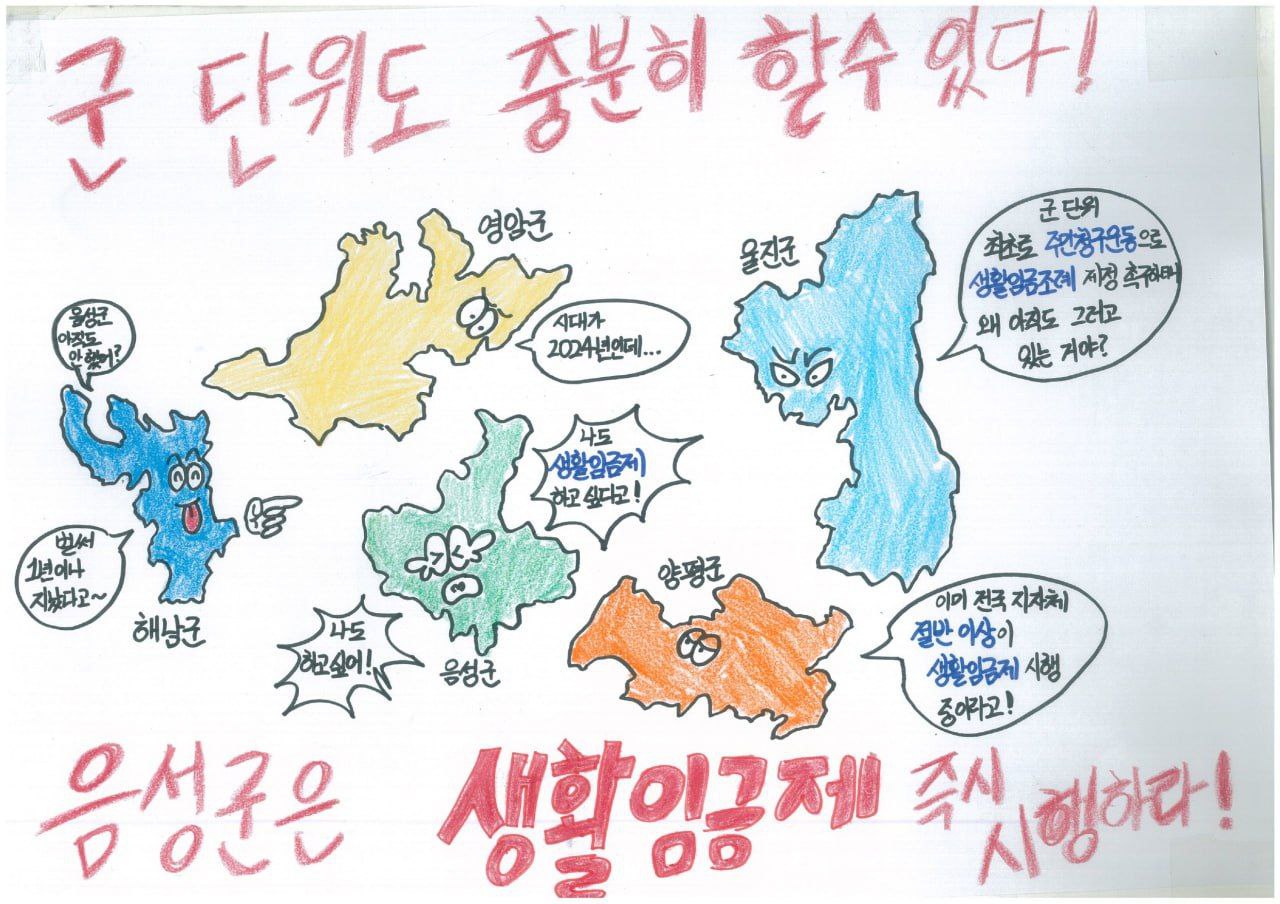 군 단위도 충분히 할 수 있다!
영암군
시대가
2024년인데...
울진군
군 단위
최초로 주민청구운동으로
생활임금조례 제정 촉구하는데
왜 아직도 그러고
있는 거야?
음성군
아직도
안 했어?
벌써
1년이나
지났다고~
해남군
나도
생활임금제
하고 싶다고!
나도
하고 싶어!
음성군
양평군
이미 전국 지자체
절반 이상이
생활임금제 시행
중이라고!
음성군은 생활임금제 즉시
시행하라!